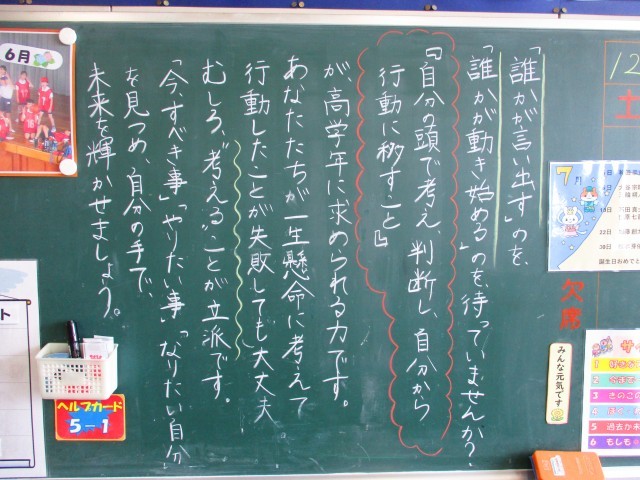 「誰かが言い出す」のを、
「誰かが動き始める」のを、待っていませんか?
『自分の頭で考え、判断し、自分から
行動に移すこと』
が、高学年に求められる力です。
あなたたちが一生懸命に考えて
行動したことが失敗しても大丈夫
むしろ、“考える”ことが立派です。
「今、すべき事」「やりたい事」「なりたい自分」
を見つめ、自分の手で、
未来を輝かせましょう。
12
土
7月
欠席
みんな元気です
6月
ヘルプカード
5-1
お誕生日おめでと
サ
1
2
3
きのこの
4
5
過去か未
6
もしも
ト